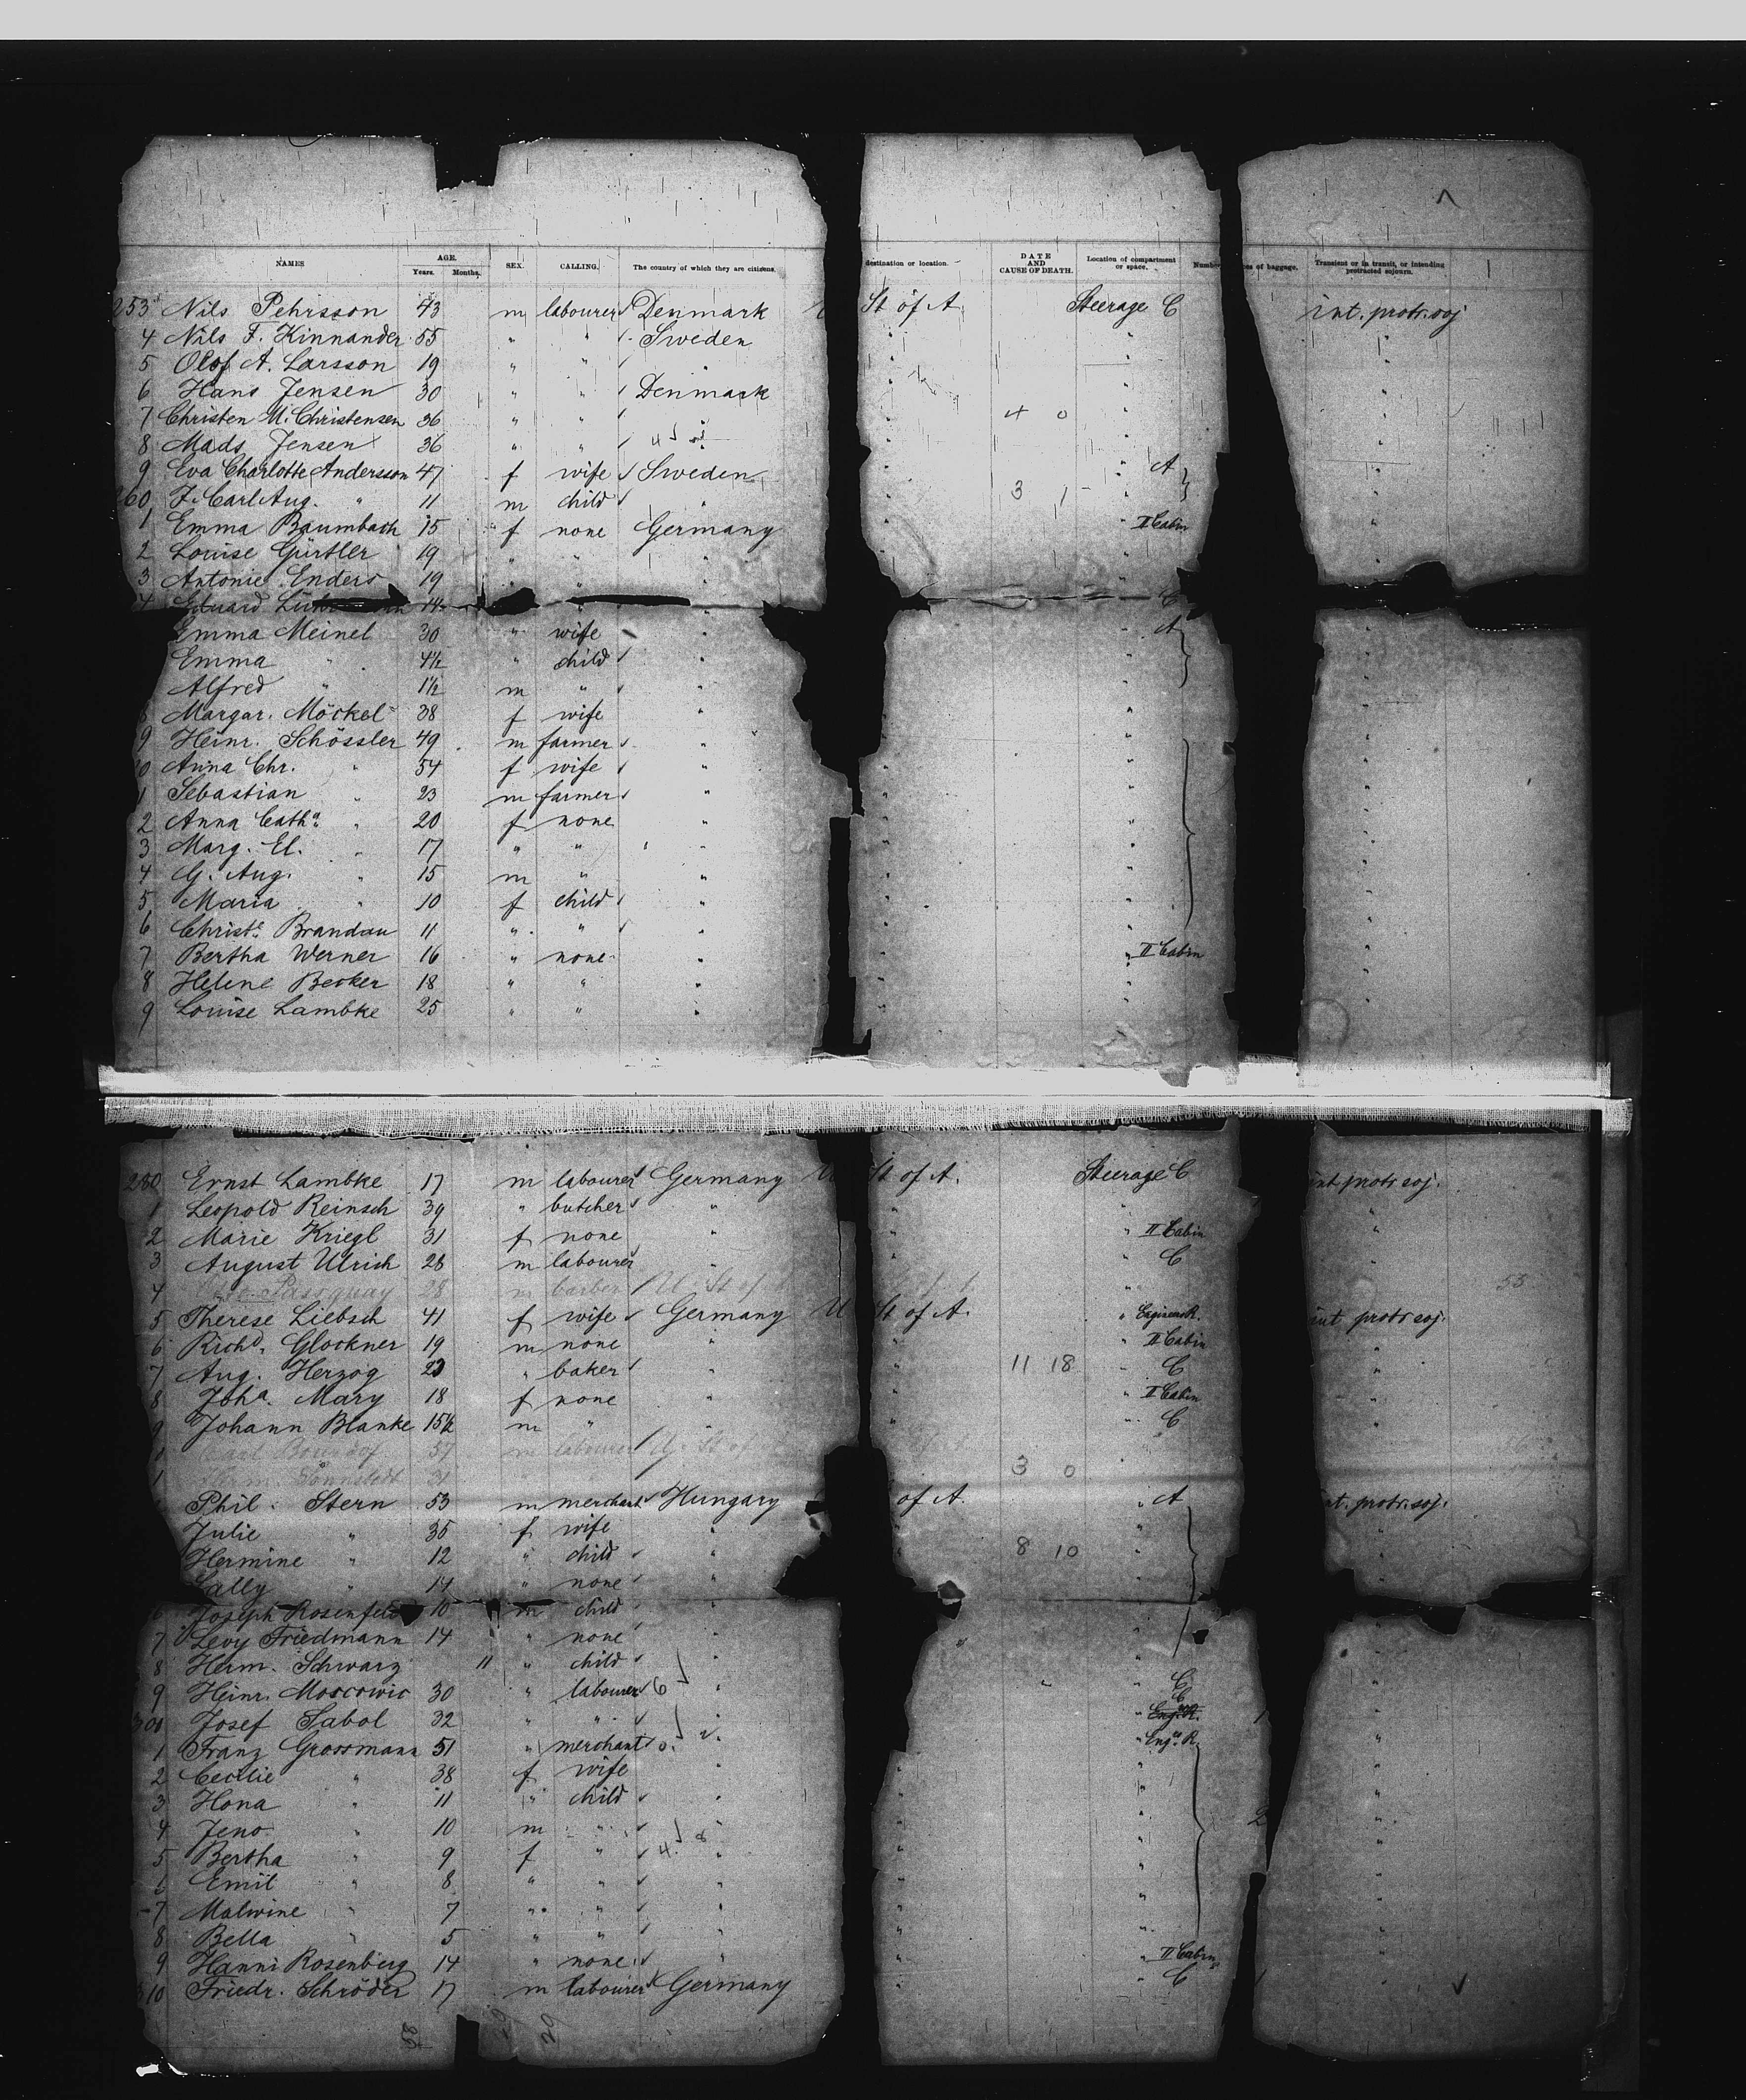 NAMES AGE. Years. Months. SEX. CALLING. The country of which they are citizens. destination or location. DATE AND CAUSE OF DEATH. Location of compartment or space. Number es of baggage. Transient or in transit, or intending protracted sojourn.
253 Nils Pehrsson 43 m labourer Denmark St of A. Steerage C int. protr. soj
4 Nils F. Kinnander 55 " " Sweden " " "
5 Olof A. Larsson 19 " " " " "
6 Hans Jensen 30 " " Denmark " " "
7 Christen M. Christensen 36 " " " " 4 0 " "
8 Mads Jensen 36 " " 4 " " " "
9 Eva Charlotte Andersson 47 f wife Sweden " " A "
260 F. Carl Aug. " 11 m child " " 3 1 " "
1 Emma Baumbach 15 f none Germany " " II Cabin "
2 Louise Gürtler 19 " " " " " "
3 Antonie Enders 19 " " " " "
4 Eduard 14 " " C
Emma Meinel 30 " wife " " A "
Emma " 4½ " child " " " "
Alfred " 1½ m " " " " "
8 Margar. Möckel 38 f wife " " " "
9 Heinr. Schössler 49 m farmer " " " "
0 Anna Chr. " 54 f wife " " " "
1 Sebastian " 23 m farmer " " " "
2 Anna Catha " 20 f none " " " "
3 Marg. El. " 17 " " " " " "
4 G. Aug. " 15 m " " " " "
5 Maria " 10 f child " " " "
6 Christe Brandau 11 " " " " " "
7 Bertha Werner 16 " none " " " II Cabin "
8 Helene Becker 18 " " " " " "
9 Louise Lambke 25 " " " " " "
280 Ernst Lambke 17 m labourer Germany U St of A. Steerage C int protr soj.
1 Leopold Reinsch 39 " butcher " " " "
2 Marie Kriegl 31 f none " " " II Cabin "
3 August Ulrich 28 m labourer " " " C "
4 Passquay 28 m barber U. St of 53
5 Therese Liebsch 41 f wife Germany U St of A. " Engineer R. int protr soj.
6 Richd. Glockner 19 m none " " " II Cabin "
7 Aug. Herzog 23 " baker " " 11 18 " C "
8 Joha. Mary 18 f none " " " II Cabin "
9 Johann Blanke 15½ m " " " " C "
57 m labourer U. St of
1 Herm. 31 3 0 "
Phil. Stern 53 m merchant Hungary of A. " A nt. protr. soj.
Julie " 35 f wife " " " "
Hermine " 12 " child " " 8 10 " "
Sally " 14 " none " " " "
6 Joseph Rosenfeld 10 m child "
7 Levy Friedmann 14 " none " " "
8 Herm. Schwarz 11 " child " " "
9 Heinr. Moscowic 30 " labourer 6 " " C "
300 Josef Sabol 32 " " " C Eng. R. 1 "
1 Franz Grossmann 51 " merchant " " " Engr. R. "
2 Cecilie " 38 f wife " " " "
3 Ilona " 11 " child " " " "
4 Jeno " 10 m " " " " 2 "
5 Bertha " 9 f " 4 8 " " " "
6 Emil " 8 " " " " " "
7 Malwine " 7 " " " " " "
8 Bella " 5 " " " " " "
9 Hanni Rosenberg 14 " none " " " II Cabin "
310 Friedr. Schröder 17 m labourer Germany " " C 1